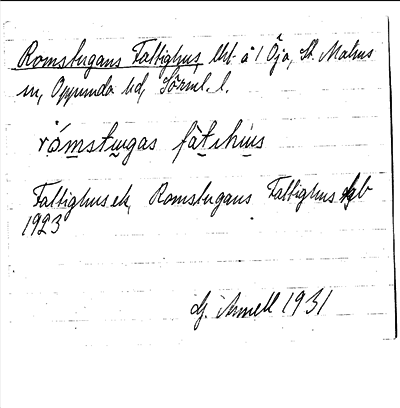 Romstugans Fattighus, lht å 1 Öja, St. Malms
sn, Oppunda hd, Sörml. l.
rómstugas fàtihius
Fattighus ek, Romstugans Fattighus Jgb
1923
G. Armell 1931